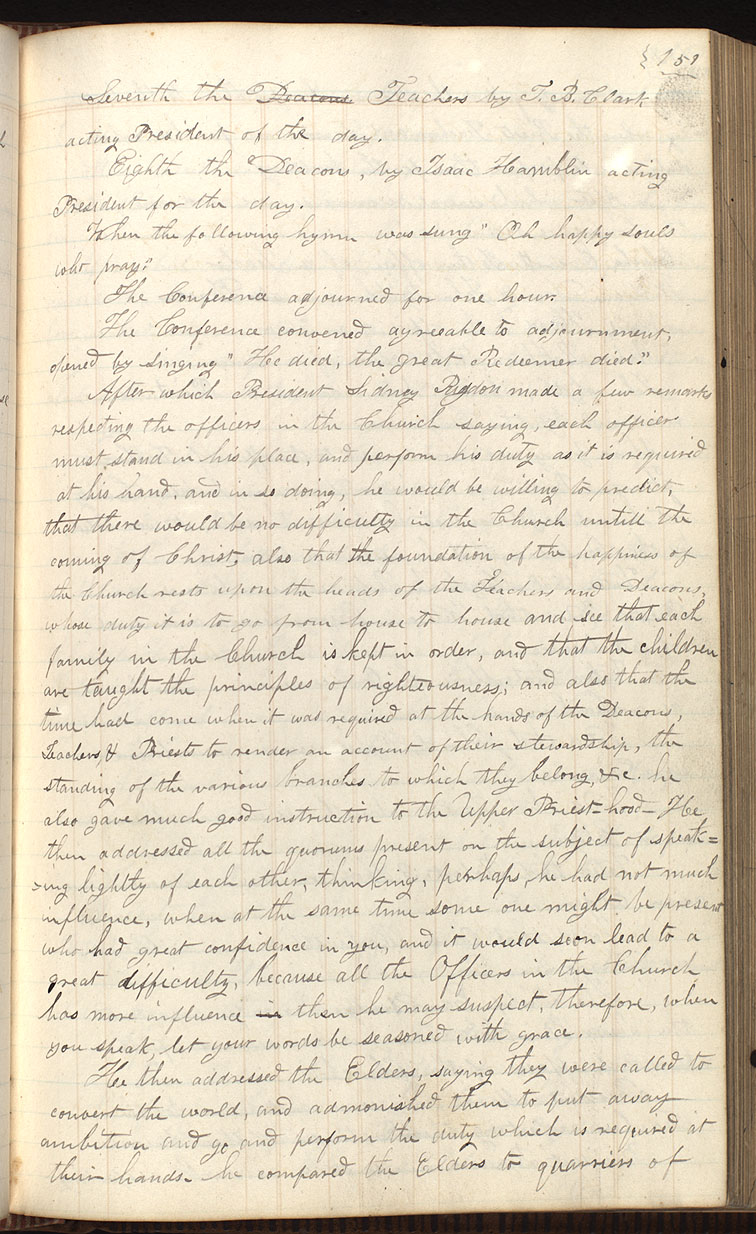 151
Seventh the Deacons Teachers by T. B. Clark
acting President of the day.
Eighth the Deacons, by Isaac Hamblin acting
President for the day.
Then the following hymn was sung "Oh happy souls
who pray."
The Conference adjourned for one hour.
The Conference convened agreeable to adjournment,
opened by singing "He died, the great Redeemer died."
After which President Sidney Rigdon made a few remarks
respecting the officers in the Church saying, each officer
must stand in his place, and perform his duty as it is required
at his hand, and in so doing, he would be willing to predict,
that there would be no difficulty in the Church untill the
coming of Christ, also that the foundation of the happiness of
the Church rests upon the heads of the Teachers and Deacons,
whose duty it is to go from house to house and see that each
family in the Church is kept in order, and that the children
are taught the principles of righteousness; and also that the
time had come when it was required at the hands of the Deacons,
Teachers & Priests to render an account of their stewardship, the
standing of the various branches to which they belong, &c. he
also gave much good instruction to the Upper Priest=hood— He
then addressed all the quorums present on the subject of speak=
=ing lightly of each other, thinking, perhaps, he had not much
influence, when at the same time some one might be present
who had great confidence in you, and it would soon lead to a
great difficulty, because all the Officers in the Church
has more influence in then he may suspect, therefore, when
you speak, let your words be seasoned with grace.
He then addressed the Elders, saying they were called to
convert the world, and admonished them to put away
ambition and go and perform the duty which is required at
their hands. he compared the Elders to quarriers of